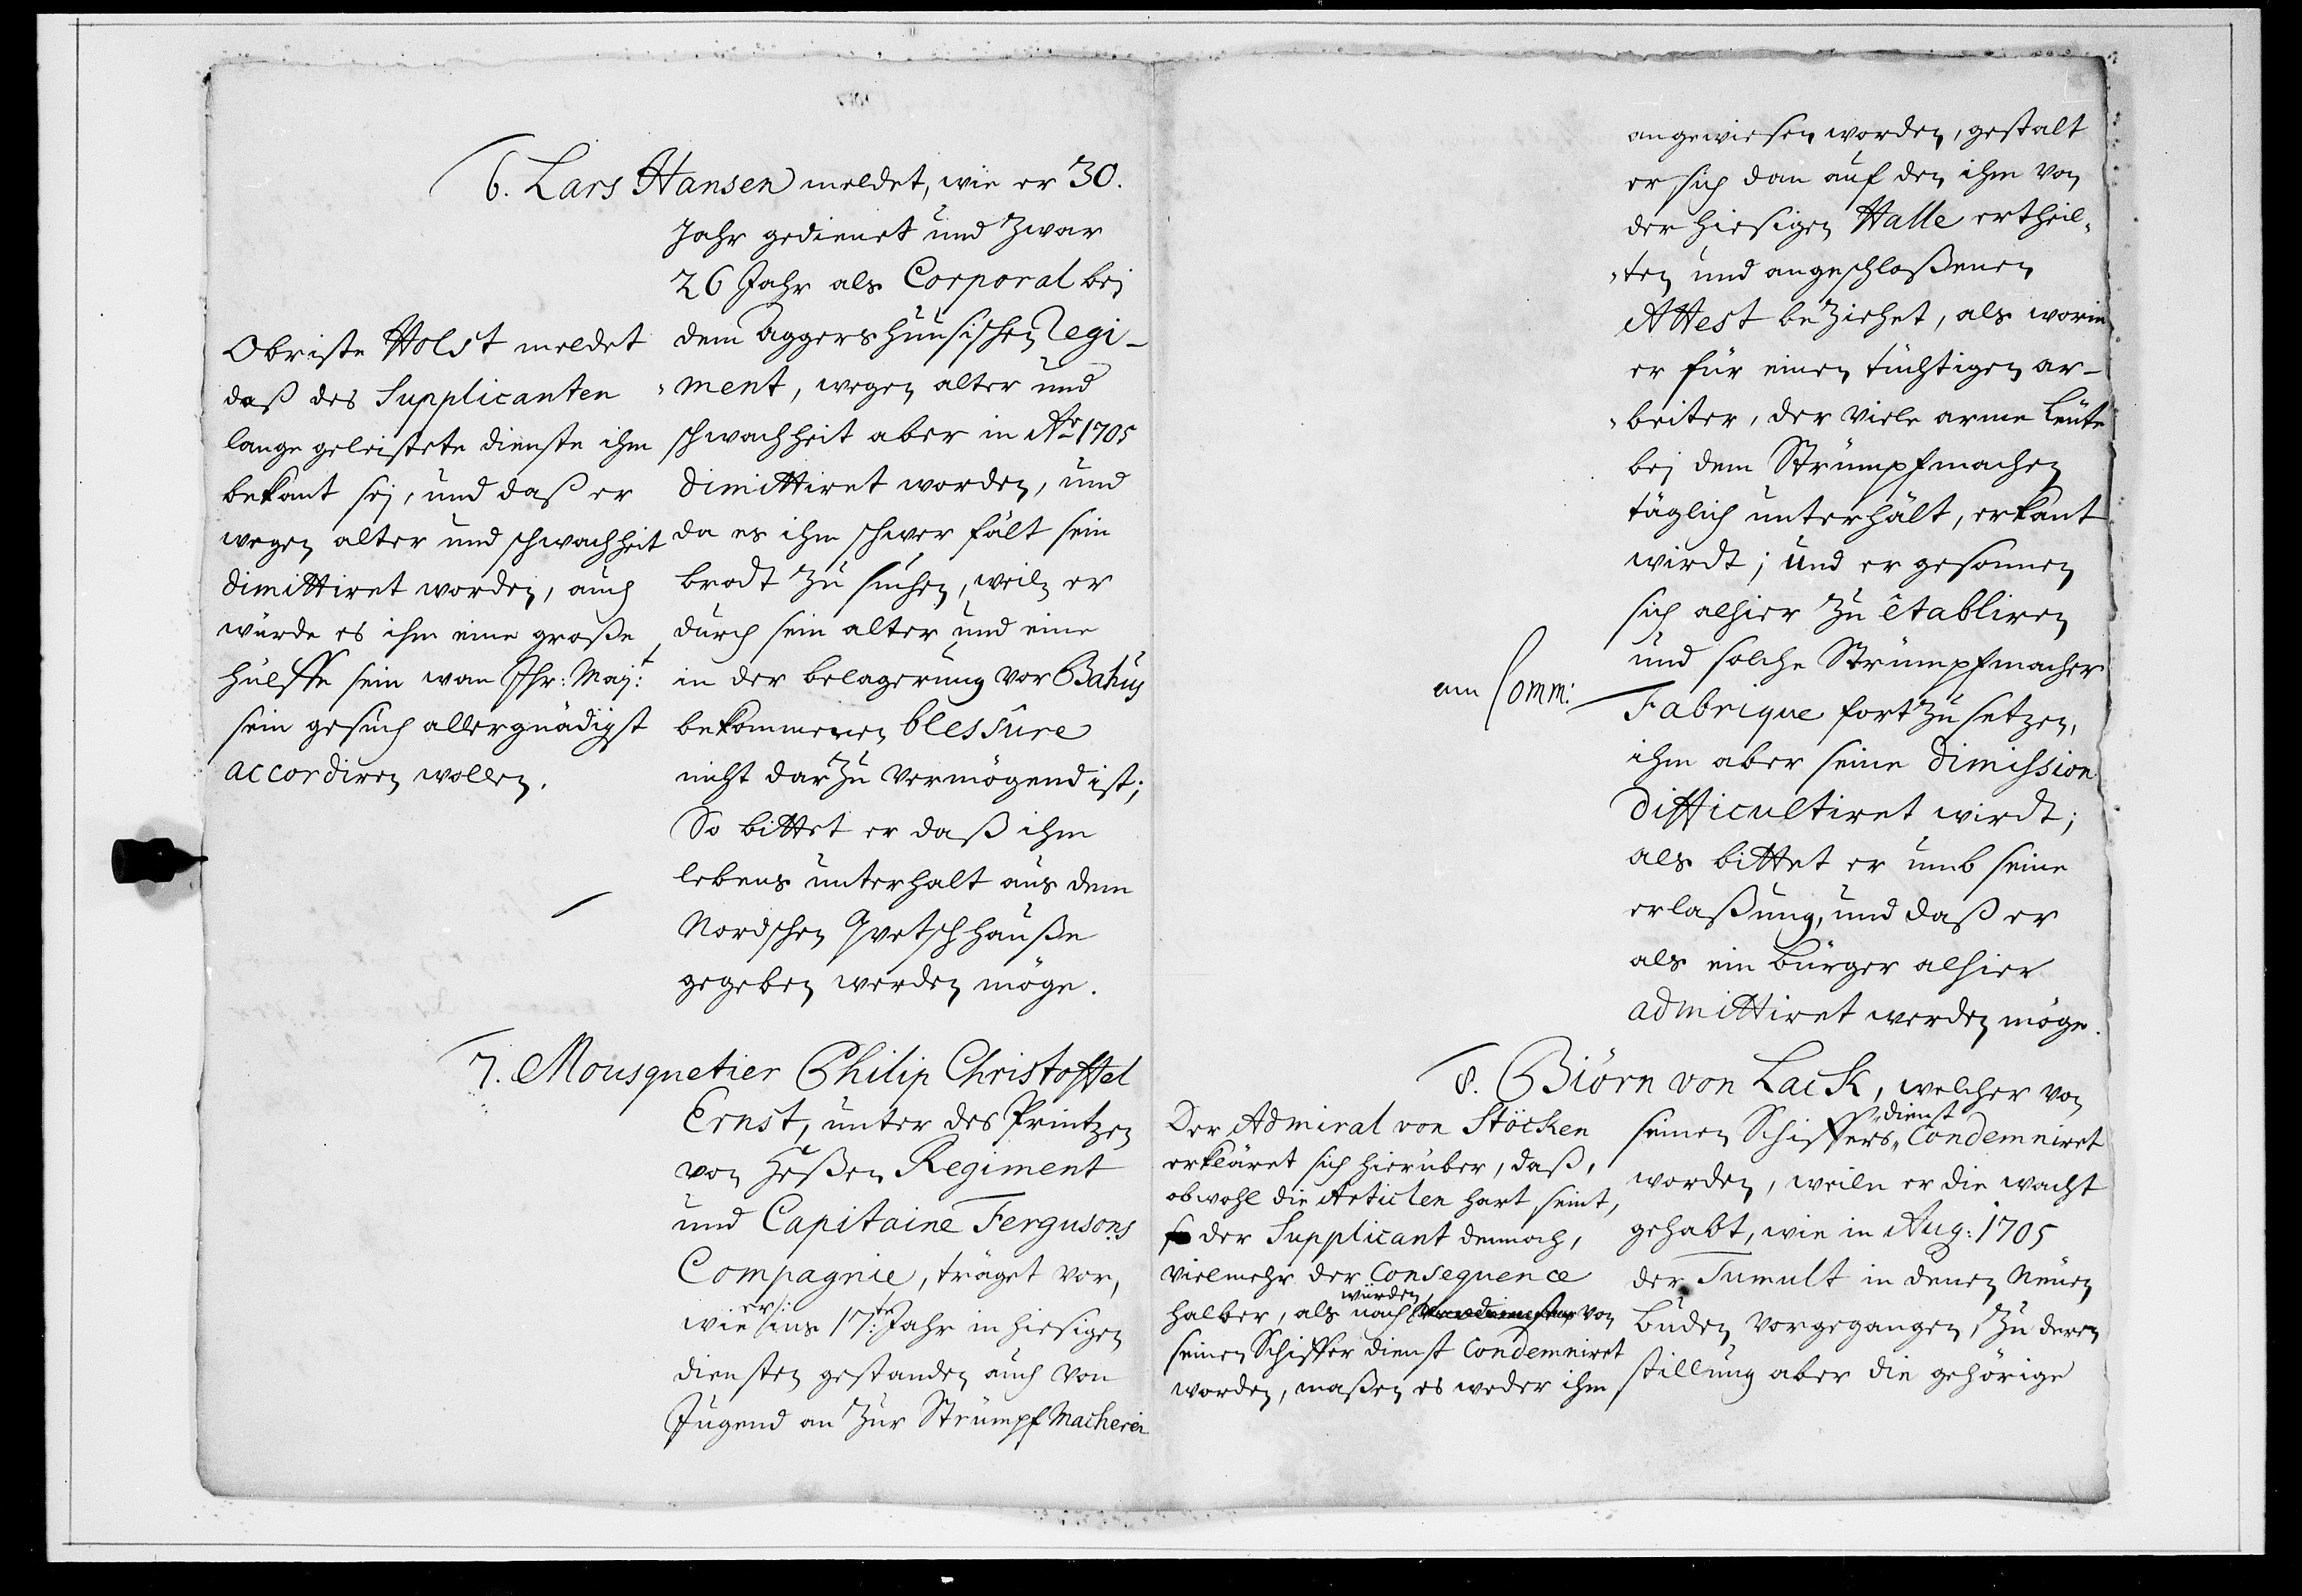 6. Lars Hansen meldet, wie er 30.
Jahr gedienet und zwar
26 Jahr als Corporal bei
dem Aggershuusischen Regi-
ment, wegen alter und
schwachheit aber in Ao 1705
dimittiret worden, und
da es ihm schwer fält sein
brodt zu suchen, weiln er
durch sein alter und eine
in der belagerung vor Bahus
bekommenen blessure
nicht darzu vermögend ist;
So bittet er daß ihm
lebens unterhalt aus dem
Nordschen Qvetschhauße
gegeben werden möge.
Obriste Holst meldet
daß des Supplicanten
lange geleistete dienste ihm
bekant sej, und daß er
wegen alter und schwachheit
dimittiret worden, auch
würde es ihm eine große
hülffe sein wan Ihr: Maj:t
sein gesuch allergnädigst
accordiren wollen.
7. Mousquetier Philip Christoffel
Ernst, unter des Printzen
von Heßen Regiment
und Capitaine Fergusons
Compagnie, träget vor,
wie er ins 17:te Jahr in hiesigen
diensten gestanden auch von
Jugend an zur Strumpf Macherei
angewiesen worden, gestalt
er sich dan auf den ihm von
der hiesigen Halle ertheil-
ten und angeschloßenen
Attest beziehet, als worin
er für einen tüchtigen ar-
beiter, der viele arme Leute
bej dem Strumpfmachen
täglich unterhält, erkant
wirdt; und er gesonnen
sich alhier zu êtabliren
und solche Strumpfmacher
Fabrique fort zu setzen,
ihm aber seine dimission
difficultiret wirdt;
als bittet er umb seine
erlaßung, und daß er
als ein bürger alhier
admittiret werden möge.
am Comm:
8. Biörn von Lack, welcher von
seinen Schiffers dienst Condemniret
worden, weiln er die wacht
gehabt, wie in Aug: 1705
der Tumult in denen Neuen
Buden vorgegangen, zu deren
stillung aber die gehörige
Der Admiral von Stöcken
erkläret sich hierüber, daß,
obwohl die Articlen hart seint,
der Supplicant dennoch,
vielmehr der Consequence
halber, als nach würden von
seinen Schiffer dienst Condemniret
worden, maßen es weder ihm